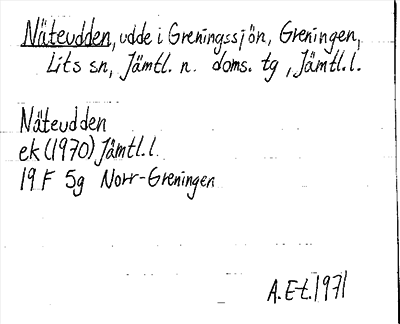 Näteudden, udde i Greningssjön, Greningen,
Lits sn, Jämtl. n. doms. tg, Jämtl.l.
Näteudden
ek (1970) Jämtl.l.
19 F 5g Norr-Greningen
A.E-t. 1971